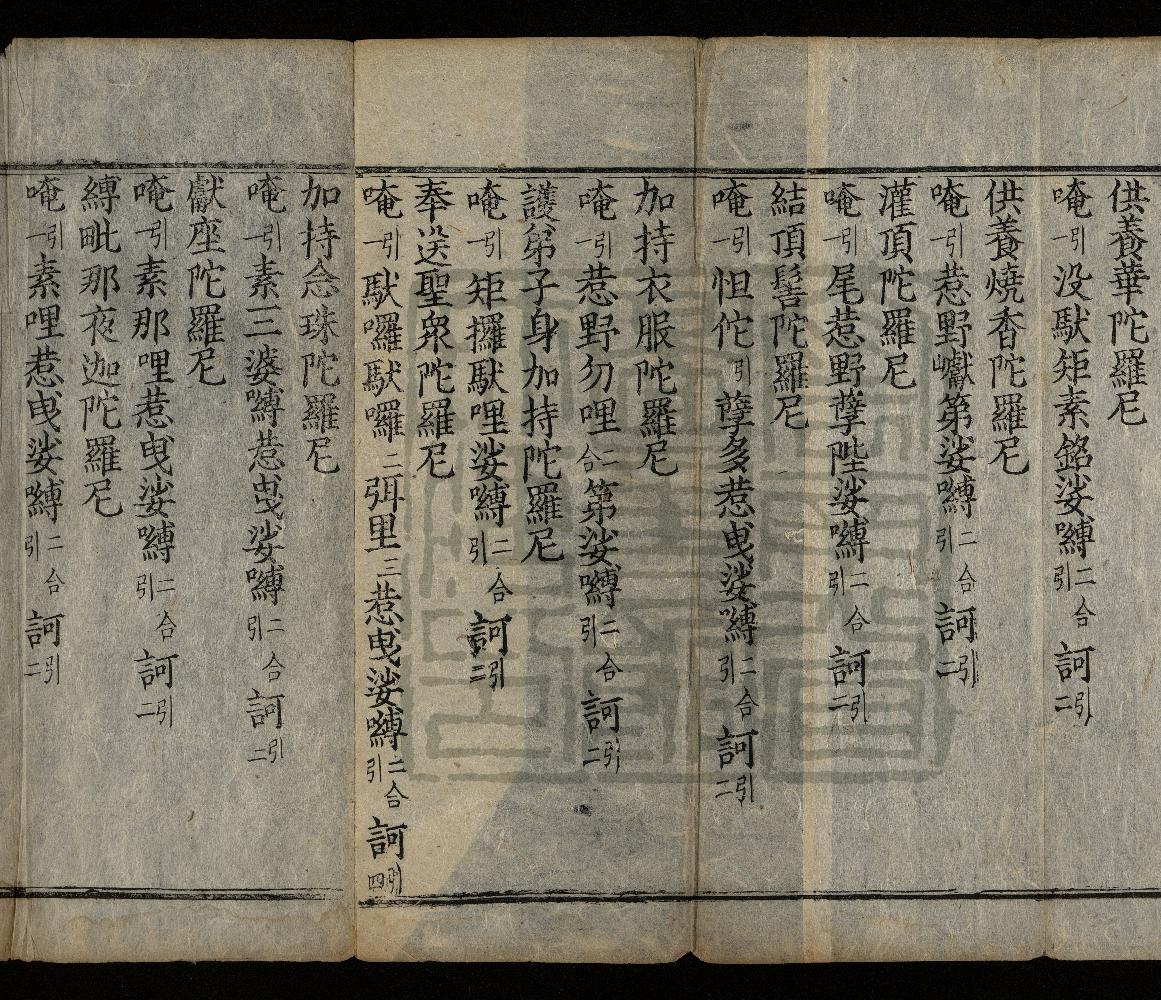 供養華陀羅尼
唵引一没馱矩素銘娑嚩二合引訶引二
供養燒香陀羅尼
唵引一惹野巘第娑嚩二合引訶引二
灌頂陀羅尼
唵引一尾惹野孽陛娑嚩二合引訶引二
結頂髻陀羅尼
唵引一怛佗引孽多惹曳娑嚩二合引訶引二
加持衣服陀羅尼
唵引一惹野勿哩二合第娑嚩二合引訶引二
護弟子身加持陀羅尼
唵引一矩攞馱哩娑嚩二合引訶引二
奉送聖衆陀羅尼
唵引一馱囉馱囉二弭里三惹曳娑嚩二合引訶引四
加持念珠陀羅尼
唵引一素三婆嚩惹曳娑嚩二合引訶引二
獻座陀羅尼
唵引一素那哩惹曳娑嚩二合引訶引二
縛毗那夜迦陀羅尼
唵引一素哩惹曳娑嚩二合引訶引二